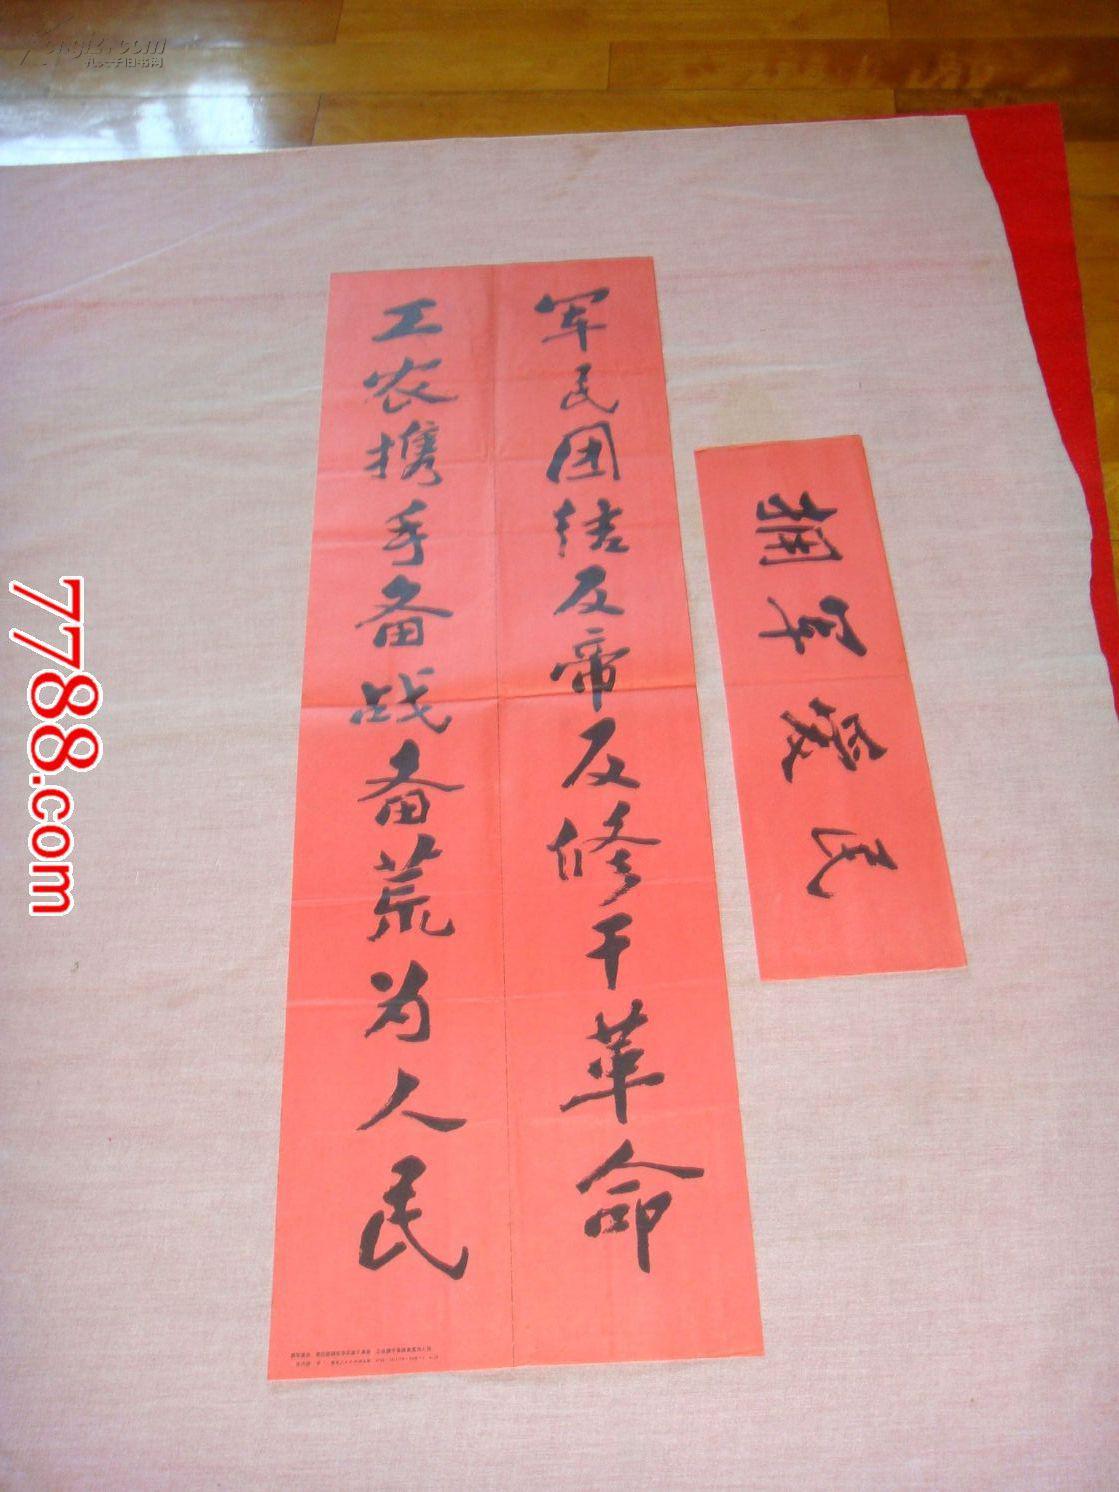 军民团结反帝反修干革命
工农携手备战备荒为人民
拥军爱民
7788.com
kongfz.com
孔夫子旧书网